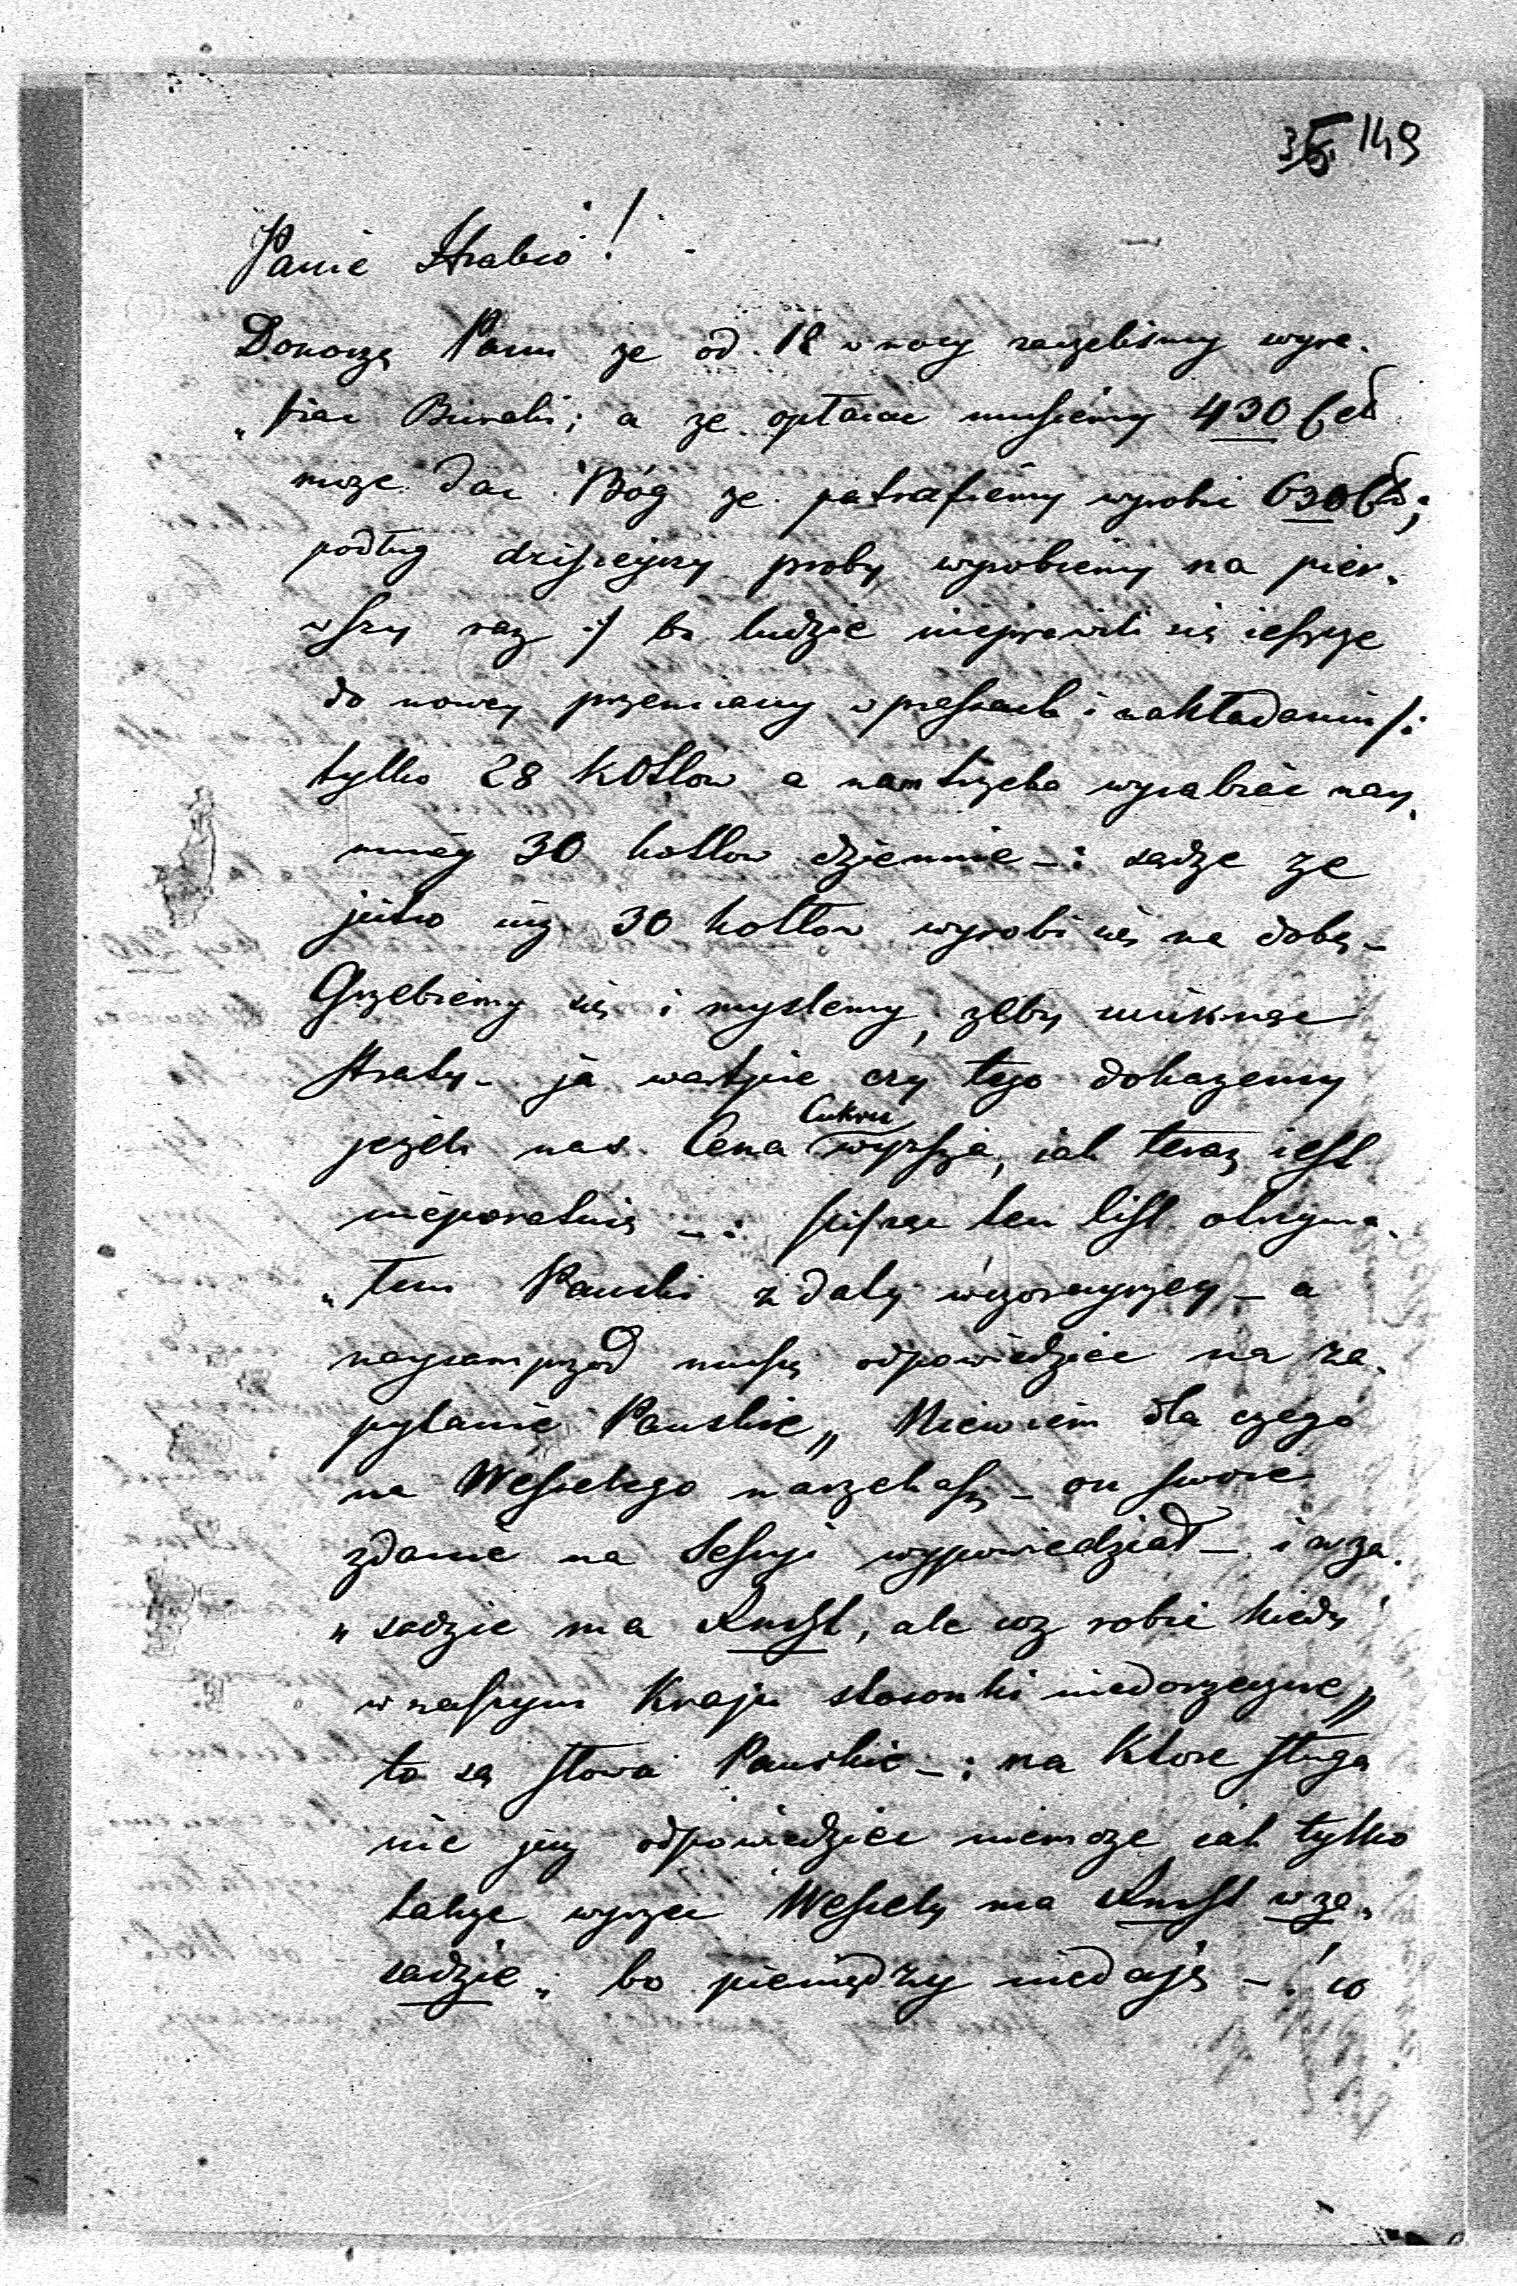 149
Panie Hrabio!
Donoszę Panu ze od 18 w nocy zaczelismy wyra-
„biac Buraki; a ze opłacac musiemy 430
moze dac Bóg ze potrafiemy wyrobic 630
podług dzisieyszy proby wyrobiemy na pier-
wszy raz :/ bo ludzie niewprawili się ieszcze
do nowey przemiany w pressach i nakładaniu /:
tylko 28 kotlow a nam trzeba wyrabiac nay-
mniey 30 kotlow dziennie –: sadze ze
jutro iuz 30 kotlow wyrobi się na dobę –
Grzebiemy się i myslemy, zeby uniknąc
straty – ja wątpie czy tego dokazemy
jezeli nas Cena Cukru wyzsza, iak teraz iest
nieporatuie –: pisząc ten list otrzyma-
„łem Panski z daty wczorayszey – a
naysamprzod muszę odpowiedziec na za-
pytanie Panskie „ Niewiem dla czego
na Wesselego narzekasz – on swoie
zdanie na Sessyi wypowiedział – i w za-
„sadzie ma słuszt, ale coz robic kiedy
w naszym Kraju stosonki niedorzeczne „
to są słowa Panskie –: na ktore sługa
nic juz odpowiedziec niemoze iak tylko
takze wyrzec Wessely ma w za-
sadzie: bo pieniędzy niedają –: co